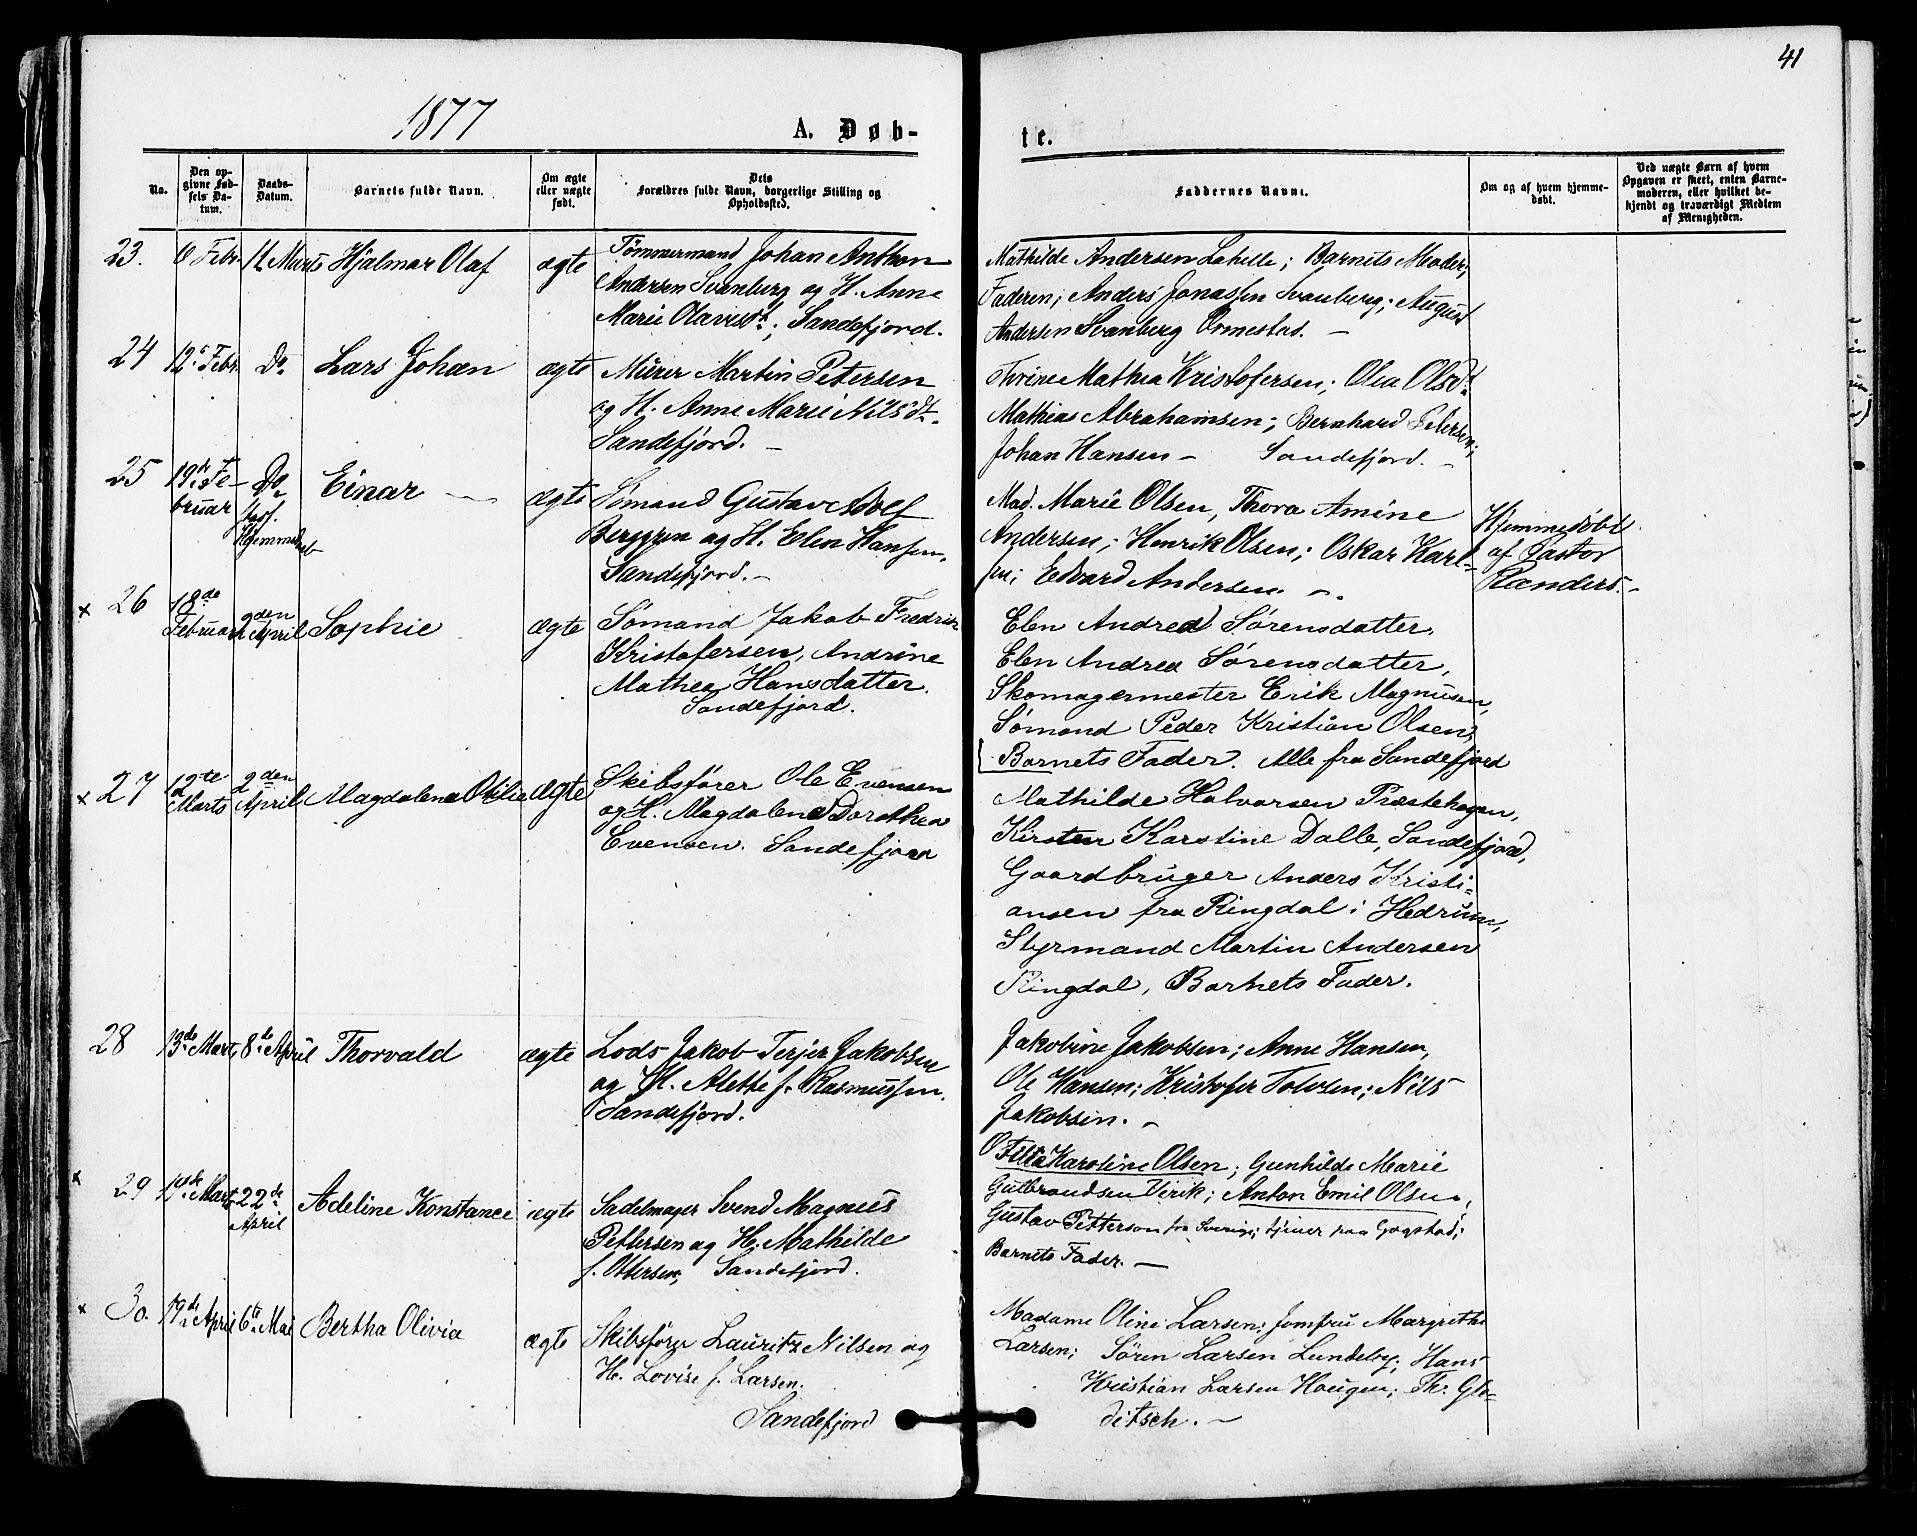 41
1877
A. Døb-
te.
No.
Den op-
givne Fød-
sels Da-
tum.
Daabs-
Datum.
Barnets fulde Navn.
Om ægte
eller uægte
født.
Dets
Forældres fulde Navn, borgerlige Stilling og
Opholdssted.
Faddernes Navne.
Om og af hvem hjemme-
døbt.
Ved uægte Børn af hvem
Opgaven er skeet, enten Barne-
moderen, eller hvilket be-
kjendt og troværdigt Medlem
af Menigheden.
23. 6 Febr. 11 Marts Hjalmar Olaf ægte Tømmermand Johan Anthon
Andersen Svanberg og H. Anne
Marie Olavesdt.; Sandefjord.
Mathilde Andersen Lahelle; Barnets Moder;
Faderen; Anders Jonassen Svanberg; August
Andersen Svanberg Ormestad. —
24 12te Febr. Do. Lars Johan ægte Murer Martin Petersen
og H. Anne Marie Nilsdt.
Sandefjord. —
Thrine Mathea Kristofersen; Olea Olsdt.
Mathias Abrahamsen; Bernhard Petersen;
Johan Hansen — Sandefjord. —
25 19de Fe-
bruar Do.
Hjemmedaab
Einar — ægte Sømand Gustav Adolf
Berggren og H. Elen Hansen.
Sandefjord. —
Mad. Marie Olsen, Thora Amine
Andersen; Henrik Olsen; Oskar Karl-
sen; Edvard Andersen. —
Hjemmedøbt
af Pastor
Randers. —
x 26 18de
Februar 2den
April Sophie ægte Sømand Jakob Fredrik
Kristofersen, Andrine
Mathea Hansdatter.
Sandefjord.
Elen Andrea Sørensdatter,
Elen Andrea Sørensdatter,
Skomagermester Erik Magnusen,
Sømand Peder Kristian Olsen,
Barnets Fader. Alle fra Sandefjord
x 27 12te
Marts 2den
April Magdalena Otilie ægte Skibsfører Ole Evensen
og H. Magdalene Dorothea
Evensen. Sandefjord
Mathilde Halvorsen Præstehagen,
Kirsten Karstine Dalle, Sandefjord,
Gaardbruger Anders Kristi-
ansen fra Ringdal i Hedrum,
Styrmand Martin Andersen
Ringdal, Barnets Fader.
28 13de Marts 8de April Thorvald ægte Lods Jakob Terjer Jakobsen
og H. Alethe f. Rasmussen.
Sandefjord.
Jakobine Jakobsen; Anne Hansen,
Ole Hansen; Kristofer Tolvsen; Nils
Jakobsen. —
x 29 14de Marts 22de
April Adeline Konstance ægte Sadelmager Svend Magnus
Pettersen og H. Mathilde
f. Ottersen, Sandefjord.
Ofelia Karoline Olsen; Gunhilde Marie
Gulbrandsen Virik; Anton Emil Olsen,
Gustav Petterson fra Sverige; tjener paa Gogstad;
Barnets Fader. —
x 30. 19de April 6te Mai Bertha Olivia ægte Skibsfører Lauritz Nilsen og
H. Lovise f. Larsen.
Sandefjord
Madame Oline Larsen; Jomfru Margrethe
Larsen; Søren Larsen Lundeby; Hans
Kristian Larsen Haugen; Th. Glo-
ditsch. —